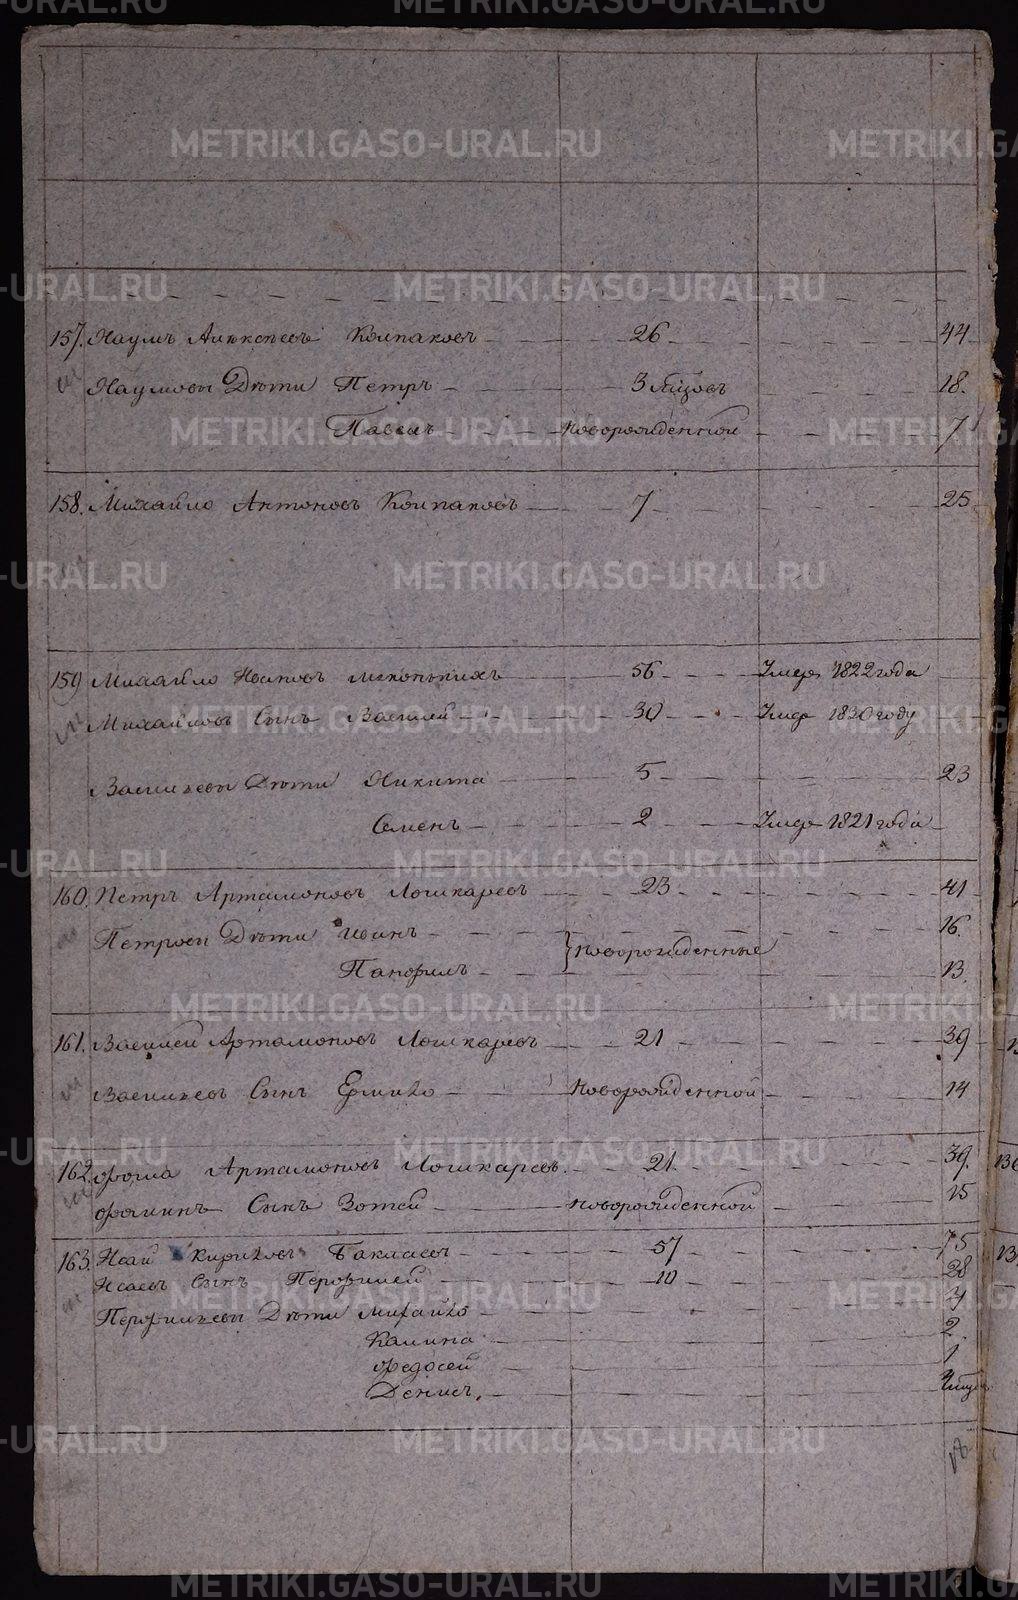 157. Наумъ Алексѣевъ Колпаковъ 26 44
Наумовы Дѣти Петръ 3 мцовъ 18.
Павелъ новорожденной 7
158. Михайло Антоновъ Колпаковъ 7 25
159 Михайло Ивановъ 56 Умеръ 1822 года
Михайловъ Сынъ Василей 30 Умеръ 1830 году
Васильевы Дѣти Никита 5 23
Семенъ 2 Умеръ 1821 года
160. Петръ Артамоновъ Лошкаревъ 23 41
Петровы Дѣти Иванъ 16.
новорожденные
Панфилъ 13.
161. Василей Артамоновъ Лошкаревъ 21 39
Васильевъ Сынъ Ермило новорожденной 14
162. Фома Артамоновъ Лошкаревъ. 21 39.
Фоминъ Сынъ Зотей новорожденной 15
163. Исай Кириловъ Баклаевъ 57 75
Исаевъ Сынъ Перфилей 10 28
Перфильевы Дѣти Михайло 4
Калина 2.
Федосей 1
Денисъ.
METRIKI.GASO-URAL.RU